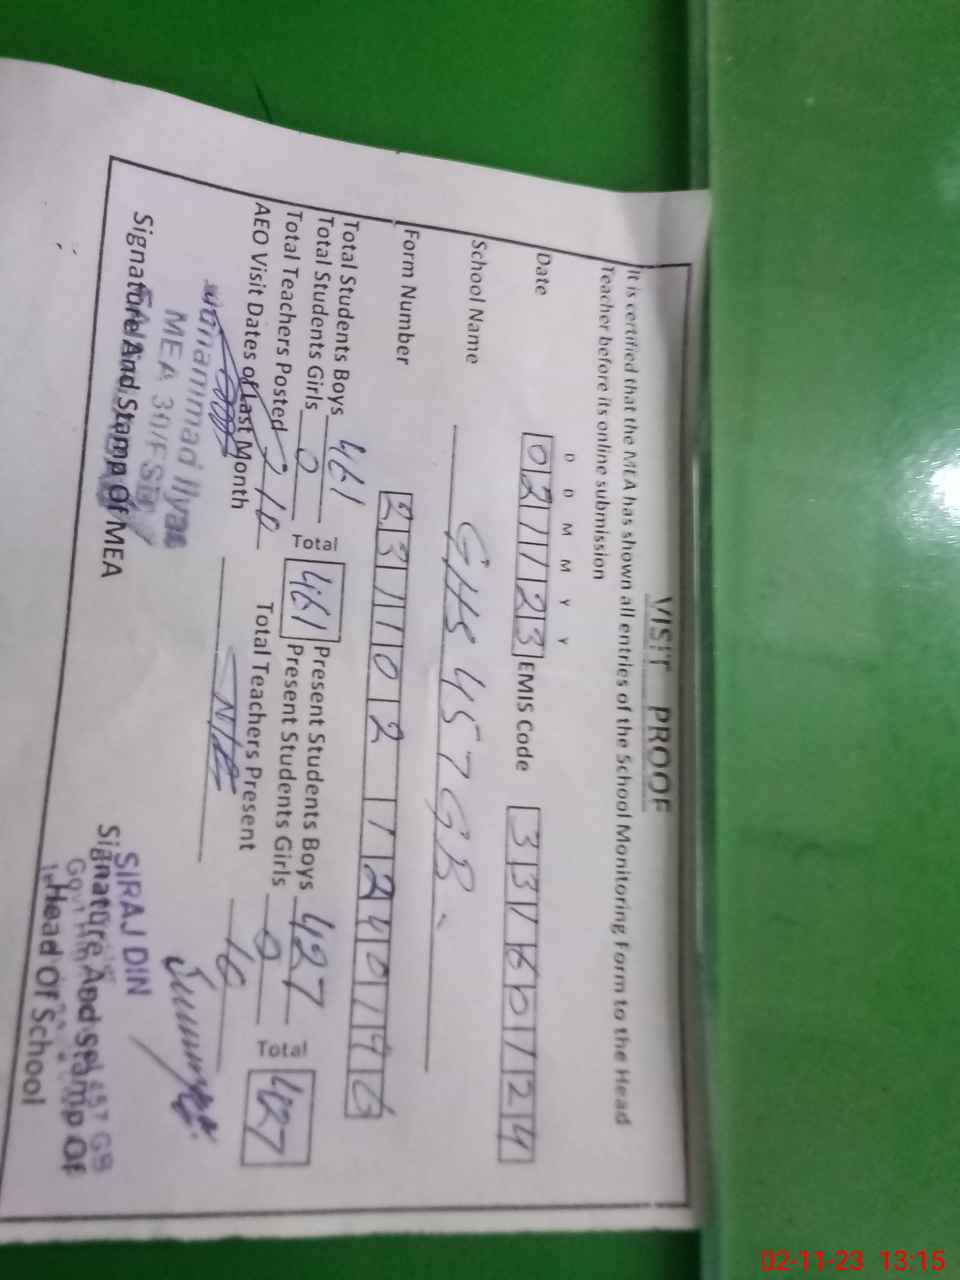 VISIT PROOF
It is certified that the MEA has shown all entries of the School Monitoring Form to the Head
Teacher before its online submission
D D M M Y Y
Date 021123 EMIS Code 33160124
School Name GHS 457 GB
Form Number
Total Students Boys 461 Total 461 Present Students Boys 427 Total 427
Total Students Girls 0 Present Students Girls 0
Total Teachers Posted Total Teachers Present
AEO Visit Dates of Last Month NIL
Muhammad Ilyas
MEA 30/FSD
Signature And Stamp Of MEA
SIRAJ DIN
Signature And Stamp Of
Head Of School
02-11-23 13:15